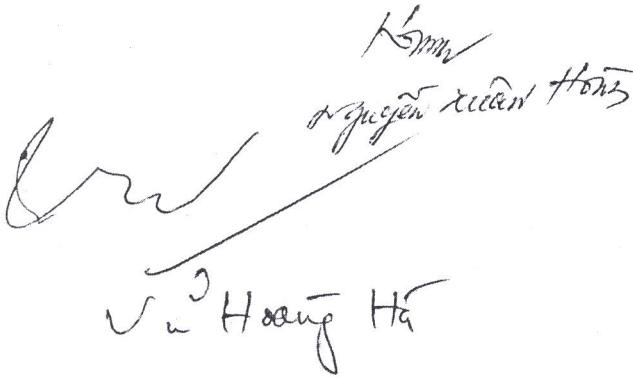 Nguyễn Xuân Hồng
Vũ Hoàng Hà